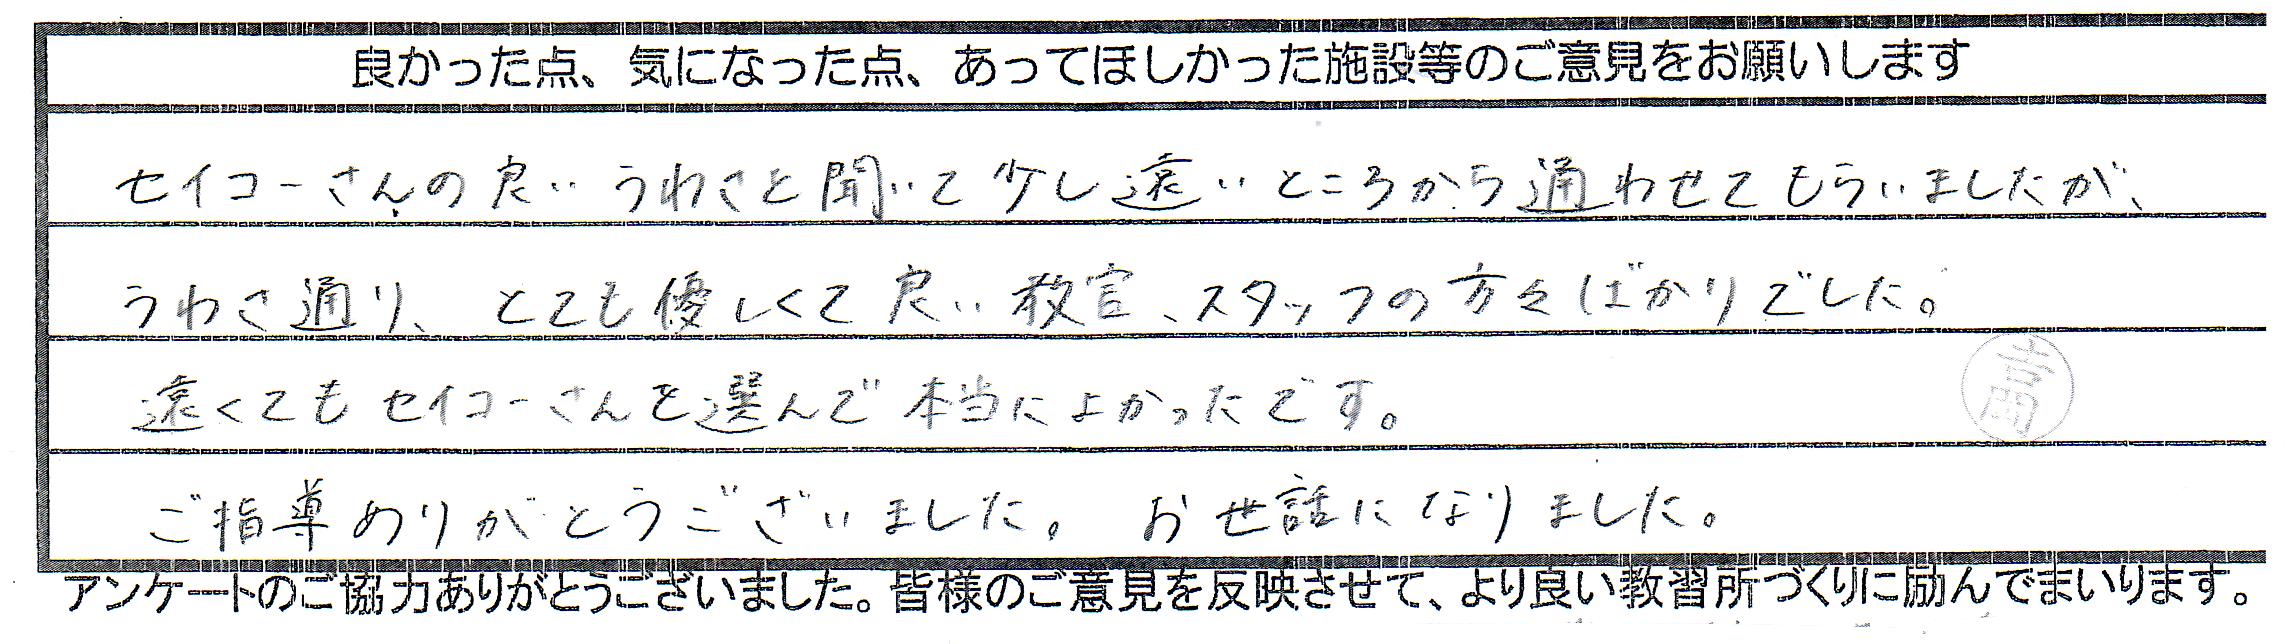 良かった点、気になった点、あってほしかった施設等のご意見をお願いします
セイコーさんの良いうわさを聞いて少し遠いところから通わせてもらいましたが、
うわさ通り、とても優しくて良い教官、スタッフの方々ばかりでした。
遠くてもセイコーさんを選んで本当によかったです。
ご指導ありがとうございました。お世話になりました。
アンケートのご協力ありがとうございました。皆様のご意見を反映させて、より良い教習所づくりに励んでまいります。